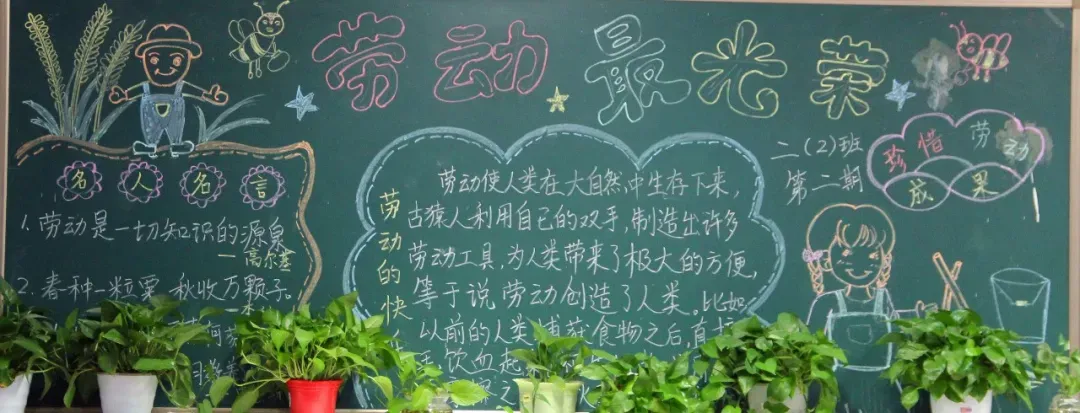 劳动最光荣
名人名言
1.劳动是一切知识的源泉
—高尔基
2.春种一粒粟 秋收万颗子。
劳动的快
劳动使人类在大自然中生存下来,
古猿人利用自己的双手,制造出许多
劳动工具,为人类带来了极大的方便,
等于说劳动创造了人类。比如
以前的人类捕获食物之后,直接
饮血
二(2)班
第二期
珍惜劳动
成果